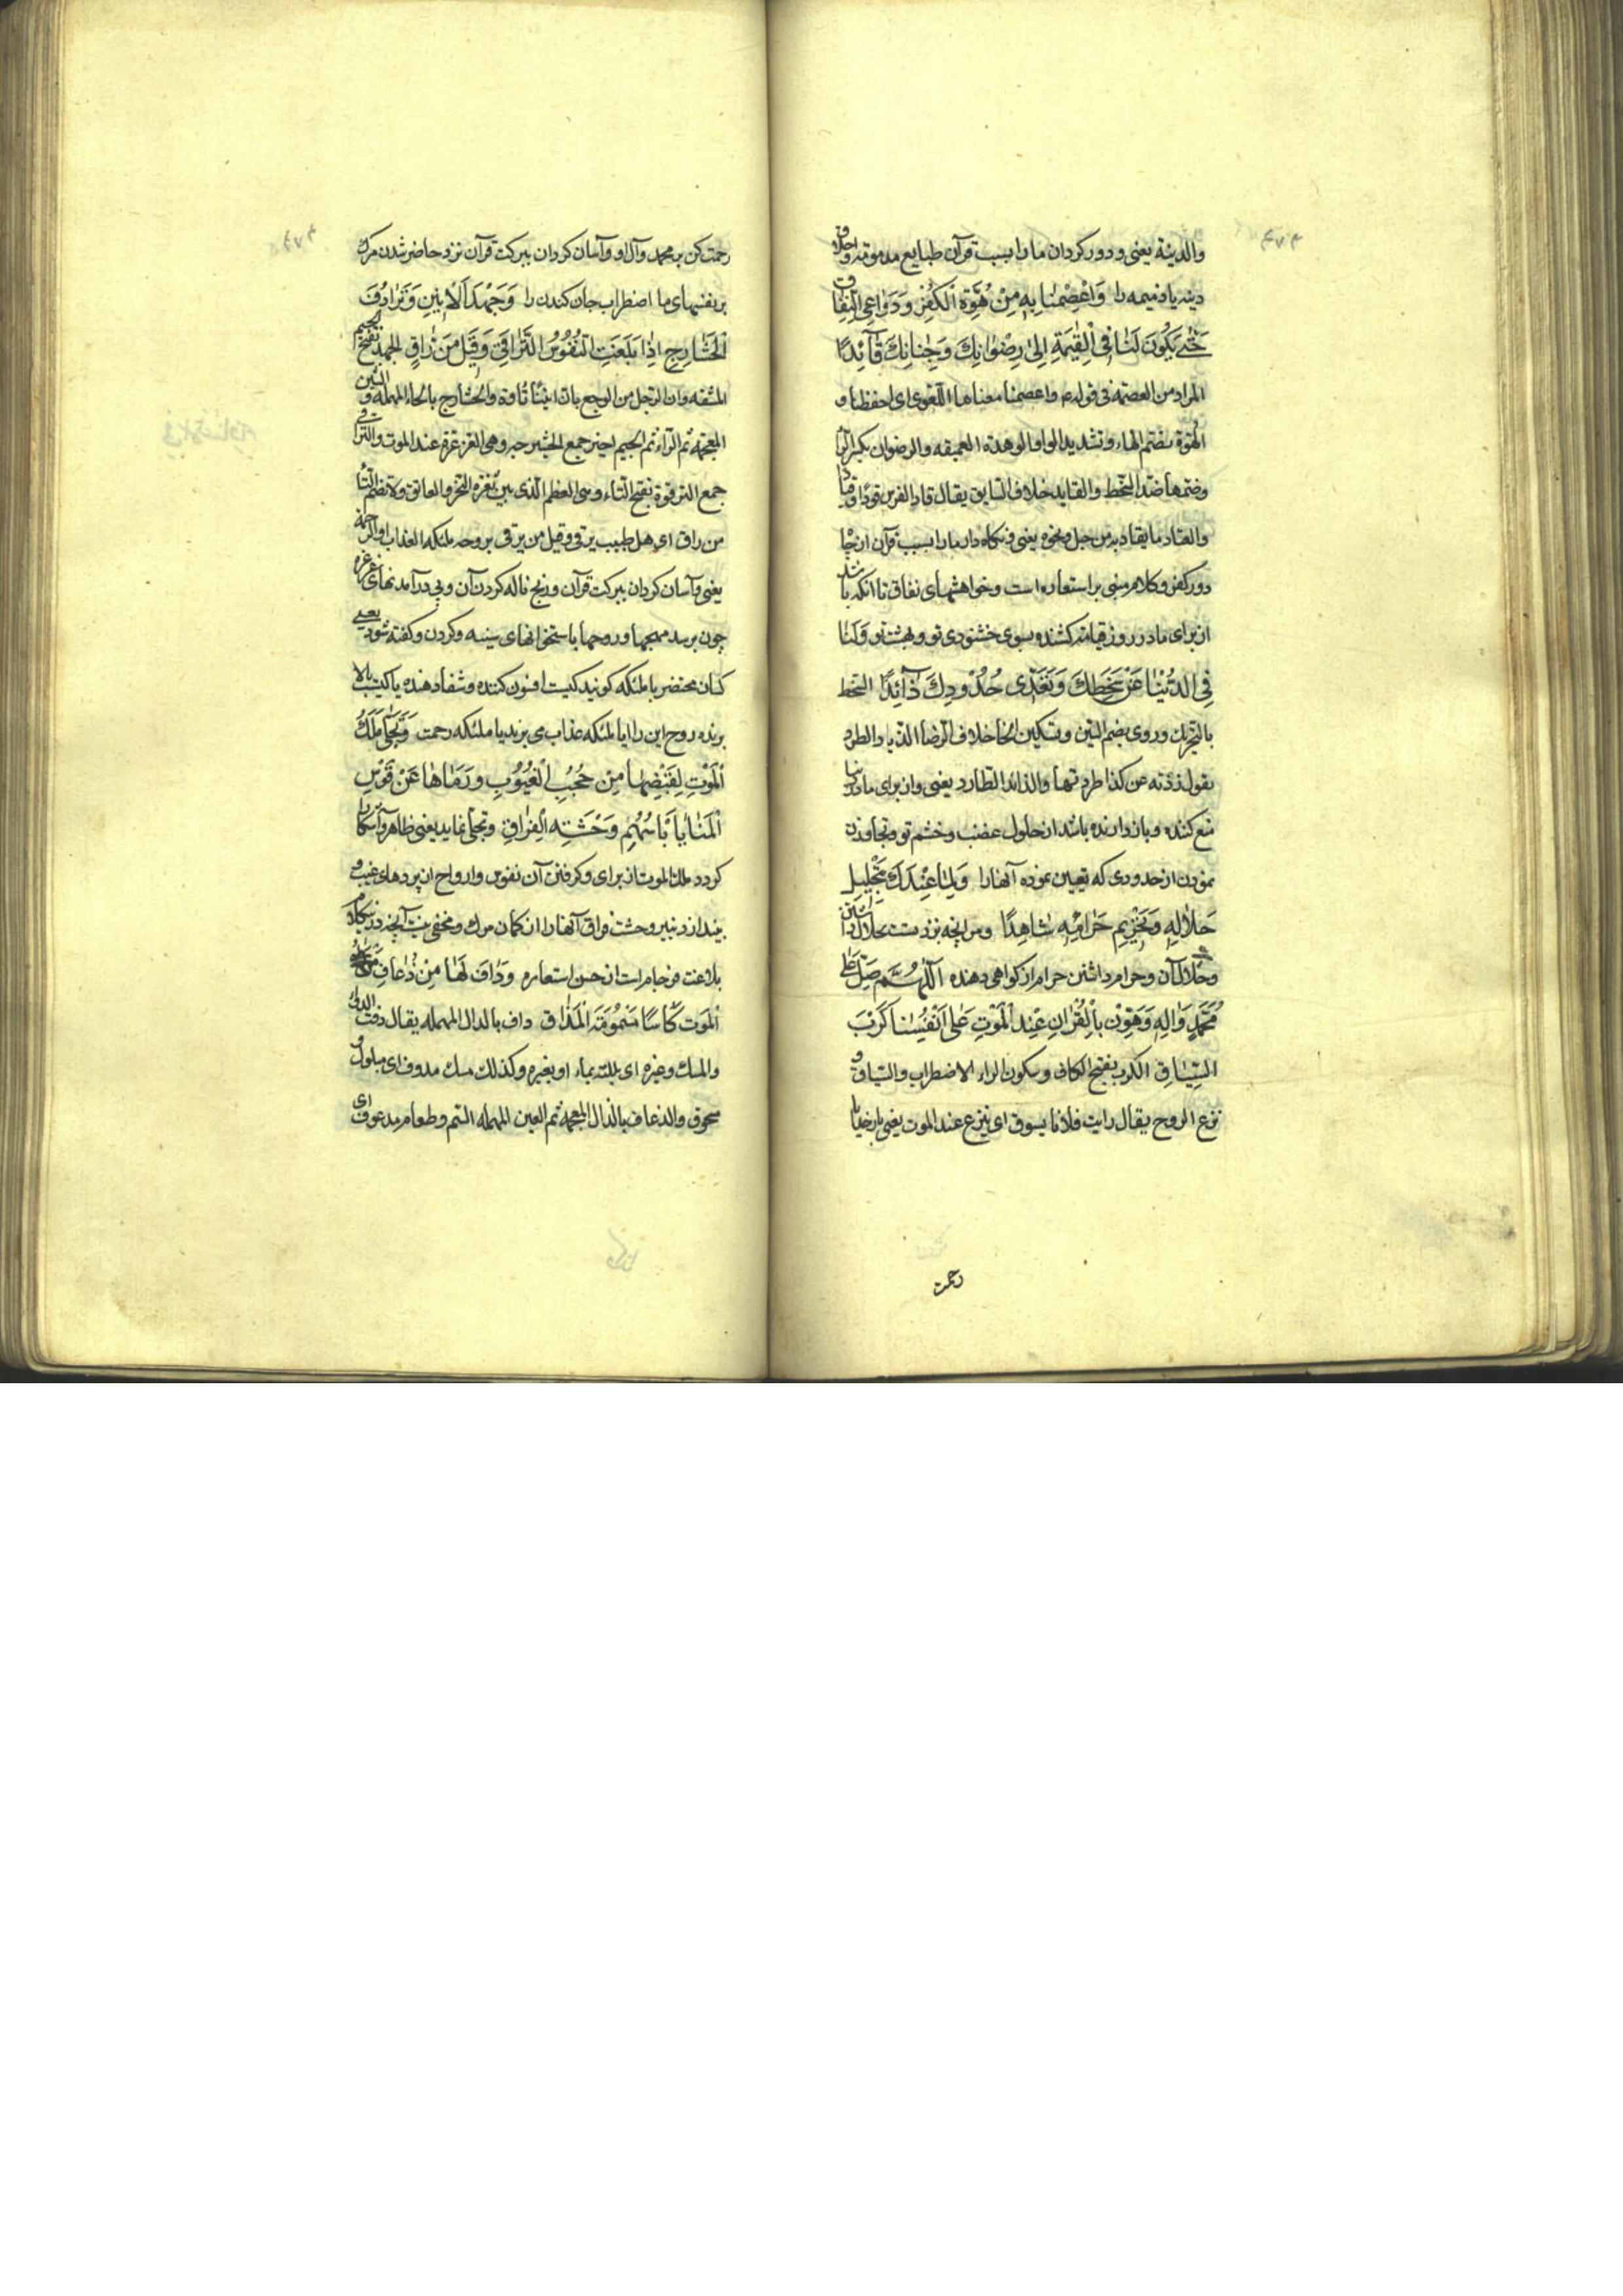 والدنیئة یعنی و دور کردان ما را بسبب قرآن طبایع مذمومه و اخلاق
دنیه یا ذمیمه را وَاعْصِمْنَا بِهِ مِنْ هُوَّةِ الْکُفْرِ وَدَوَاعِی النِّفَاقِ
حَتّٰی یَکُونَ لَنَا فِی الْقِیٰمَةِ اِلیٰ رِضْوَانِكَ وَجِنَانِكَ قَآئِدًا
المراد من العصمة فی قوله ع واعصمنا معناها اللغوی ای احفظنا و
الهُوّة بضم الهاء وتشدید الواو الوهدة العمیقه والرضوان بکسر الرا
وضمها ضد السخط والقاید خلاف السایق یقال قاد الفرس قودا وقیادا
والقیاد ما یقاد به من حبل ونحوه یعنی و نکاه دار ما را بسبب قرآن از چاه
دور کفر و کلام مبنی بر استعاره است و خواهشهای نفاق تا آنکه باشد
از برای ما در روز قیامت کشنده بسوی خشنودی تو و بهشت تو وَلَنَا
فِی الدُّنْیَا عَنْ سَخَطِكَ وَتَعَدِّی حُدُودِكَ ذَآئِدًا السخط
بالتحریك وروی بضم السین وتسکین الخا خلاف الرضا الذیاد الطرد
یقول ذدته عن کذا طردتها والذائد الطارد یعنی و از برای ما در دنیا
منع کننده و باز دارنده باشد از حلول غضب و خشم تو و تجاوز
نمودن از حدودی که تعیین نموده آنها را وَلِمَا عِنْدَكَ بِتَحْلِیلِ
حَلَالِهِ وَتَحْرِیمِ حَرَامِهِ شَاهِدًا و مر انچه نزد تست بحلال داشتن
حلال آن و حرام داشتن حرام از کواهی دهنده اَللّٰهُمَّ صَلِّ عَلٰی
مُحَمَّدٍ وَاٰلِهِ وَهَوِّنْ بِالْقُرْاٰنِ عِنْدَ الْمَوْتِ عَلیٰ اَنْفُسِنَا کَرْبَ
السِّیَاقِ الکرب بفتح الکاف وسکون الراء الاضطراب والسیاق
نزع الروح یقال رایت فلانا یسوق ای ینزع عند الموت یعنی بارخدایا
رحمت
رحمت کن بر محمد و آل او و آسان کردان ببرکت قرآن نزد حاضر شدن مرك
بر نفسهای ما اضطراب جان کندن را وَجَهْدَ الْاَنِینِ وَتَرَادُفَ
الْحَشَارِجِ اِذَا بَلَغَتِ النُّفُوسُ التَّرَاقِیَ وَقِیلَ مَنْ رَاقٍ الجهد بفتح الجیم
المشقه وانّ الرجل من الوجع یانّ انینًا تاوّه والحشارج بالحاء المهمله و الشین
المعجمه ثم الرّاء ثم الجیم اخیر جمع الحشرجه وهی الغرغرة عند الموت والتراقی
جمع الترقوة بفتح التاء وهی العظم الّذی بین ثغرة النحر والعاتق ولا تضم التاء
من راق ای هل طبیب یرقی وقیل من یرقی بروحه ملئکة العذاب او الرحمة
یعنی و آسان کردان ببرکت قرآن و رنج ناله کردن آن و پی در آمدنهای غرغره
چون برسد مهجها و روحها باستخوانهای سینه و کردن و کفته شود یعنی
کسان محتضر یا ملئکه کویند کیست افسون کننده و شفا دهنده یا کیست بالا
برنده روح این را ایا ملئکه عذاب می برند یا ملئکه رحمت وَتَجَلّٰی مَلَكُ
الْمَوْتِ لِقَبْضِهَا مِنْ حُجُبِ الْغُیُوبِ وَرَمَاهَا عَنْ قَوْسِ
الْمَنَایَا بِاَسْهُمِ وَحْشَةِ الْفِرَاقِ و تجلی نماید یعنی ظاهر و آشکارا
کردد ملك الموت از برای و کرفتن آن نفوس و ارواح از پردهای غیب و
بیندازد بتیر وحشت فراق آنها را از کمان مرك و مخفی نیست آنچه در این کلام
بلاغت فرجام است از حسن استعاره وَدَافَ لَهَا مِنْ ذُعَافِ
الْمَوْتِ کَاْسًا مَسْمُومَةَ الْمَذَاقِ داف بالدال المهمله یقال دفت الدواء
والمسك وغیره ای بللته بماء او بغیره وکذلك مسك مدوف ای مبلول و
مسحوق والذعاف بالذال المعجمه ثم العین المهمله السّم وطعام مذعوف ای